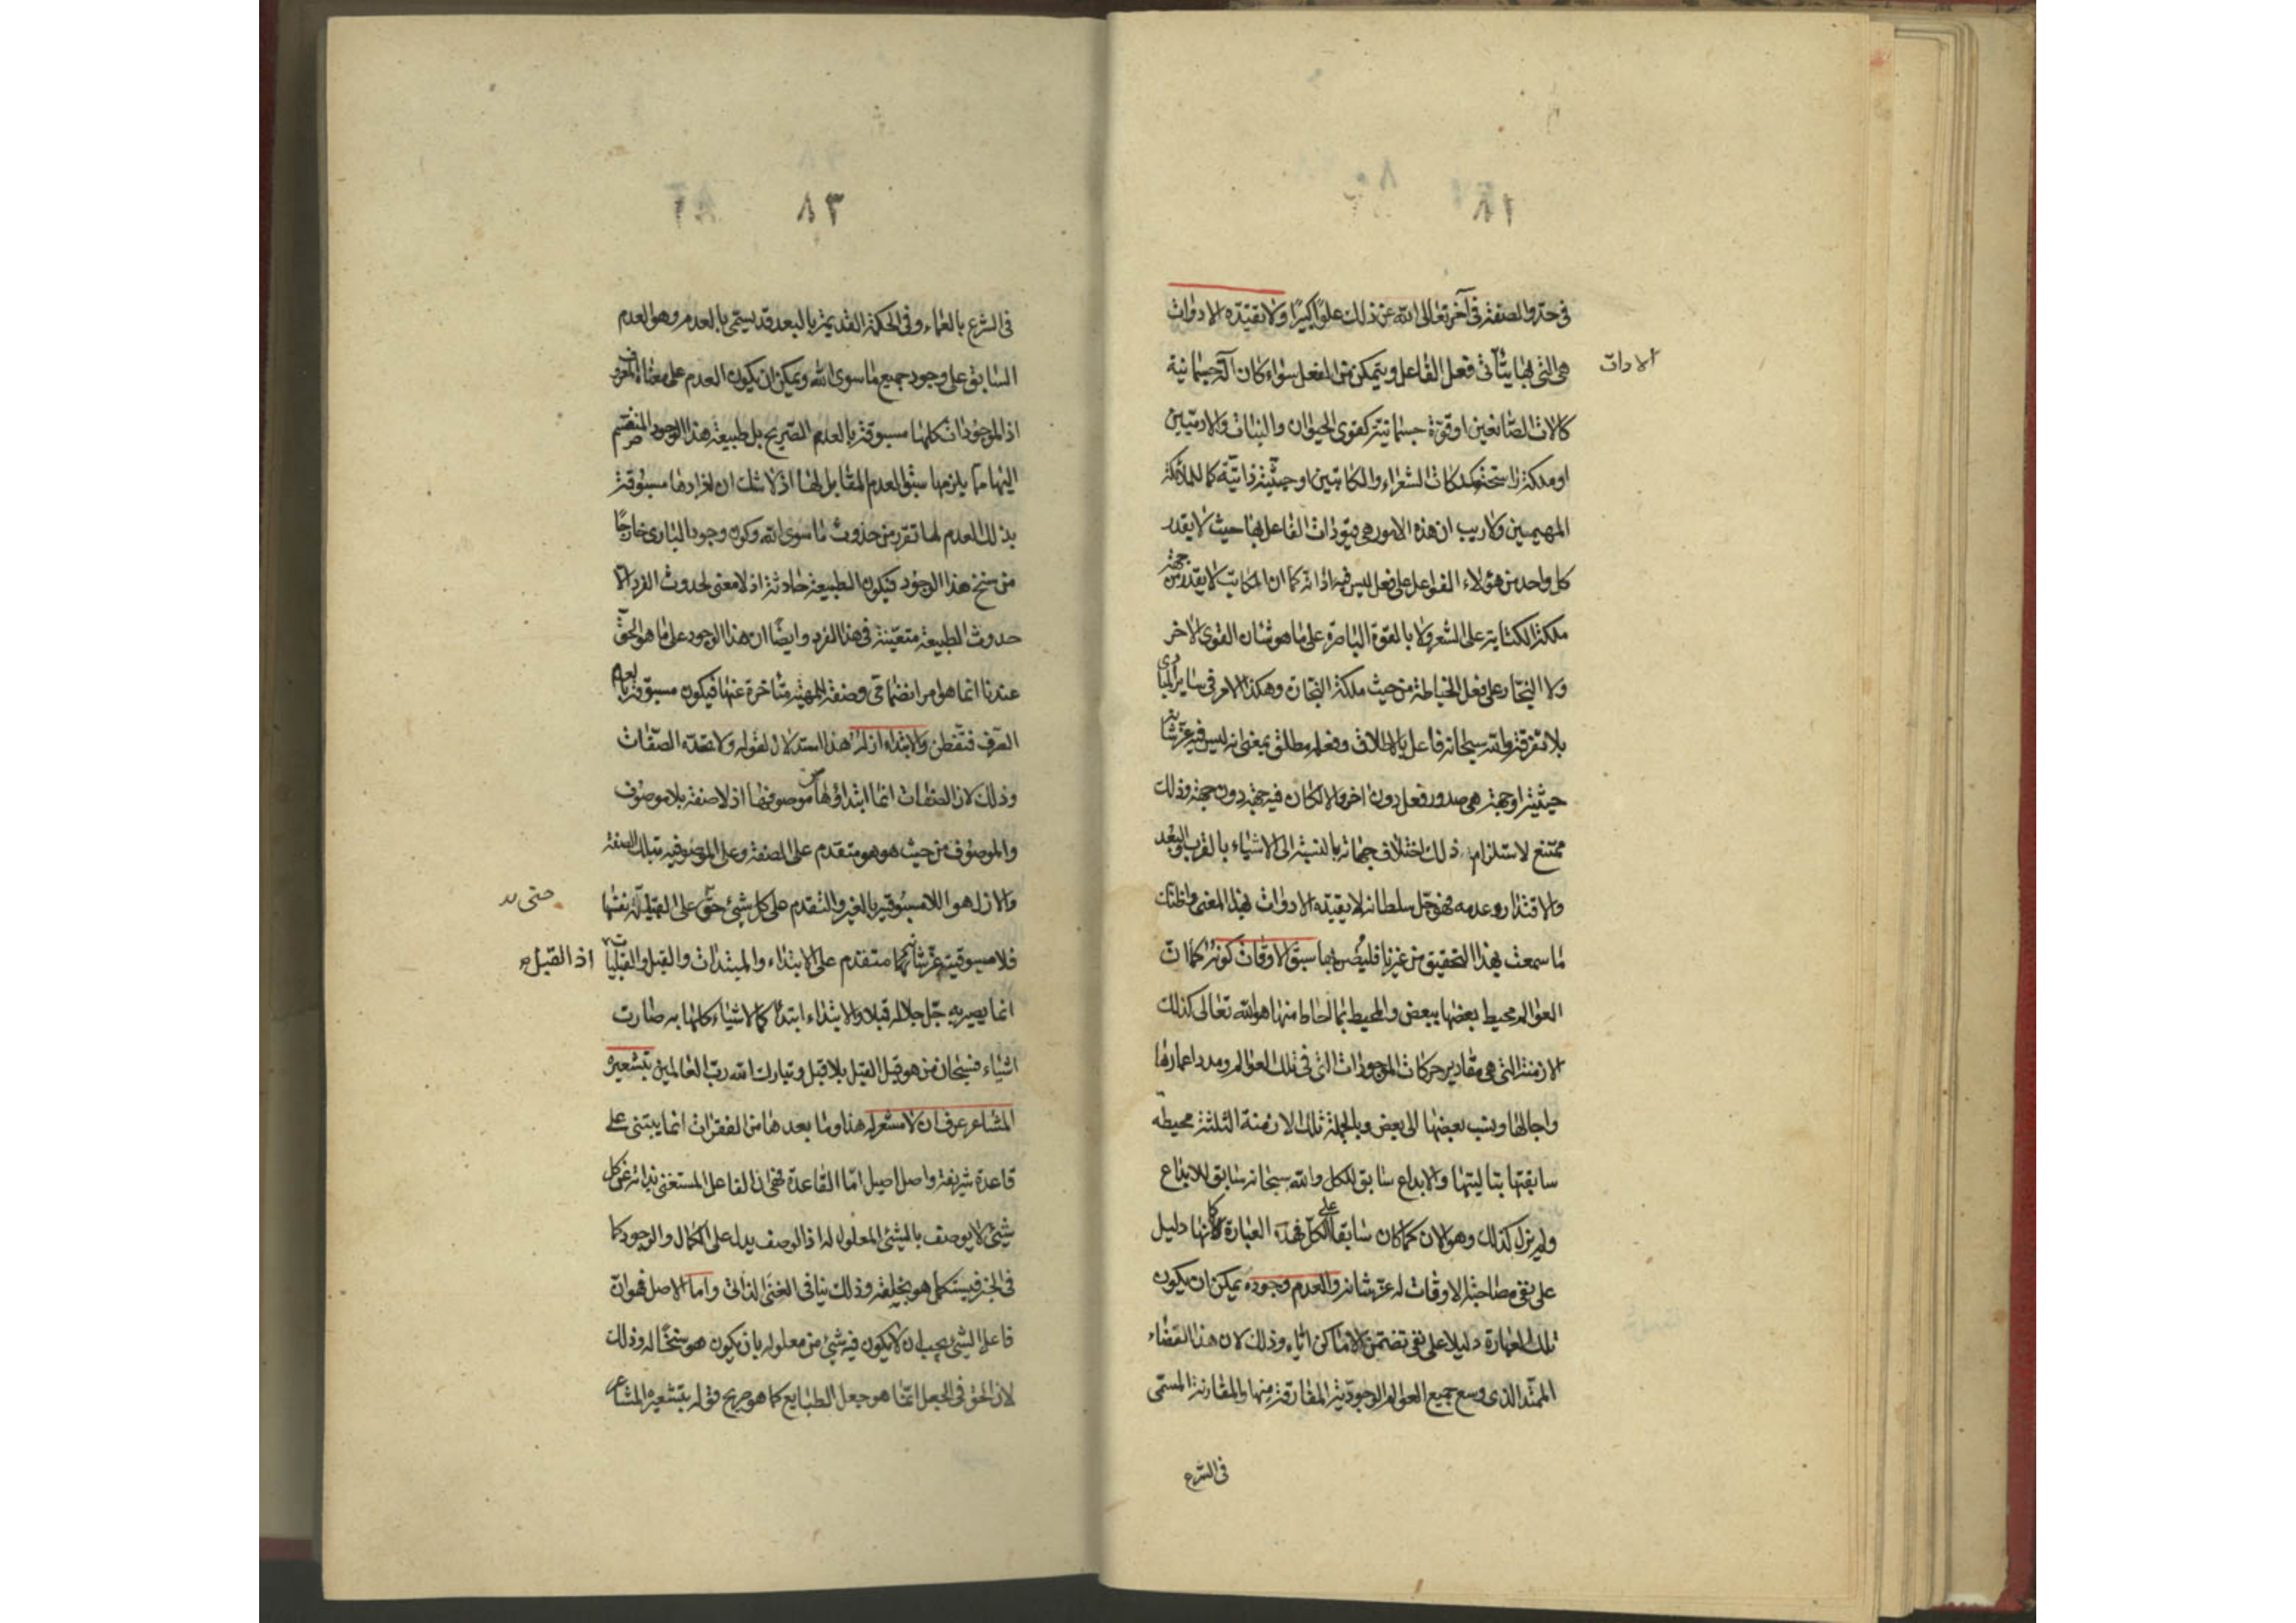 ١٨١
فى حد والصفة فى آخر تعالى الله عن ذلك علوًا كبيرًا ولا تقيّده الادوات
الادات
هى التى بها يتأتى فعل الفاعل ويتمكن من الفعل سواء كان آلة جسمانية
كالات الصانعين او قوة جسمانية كقوى الحيوان والنبات والادميين
او ملكة راسخة كملكات الشعراء والكاتبين او حيثية ذاتية كما للملائكة
المهيمين ولا ريب ان هذه الامور هى قيود ذات الفاعل بها حيث لا يقدر
كل واحد من هؤلاء الفواعل على فعل ليس فيه اداته كما ان الكاتب لا يقدر من جهة
ملكة الكتابة على الشعر ولا بالقوة الباصرة على ما هو شان القوى الاخر
ولا النجار على فعل الخياطة من حيث ملكة النجارة وهكذا الامر فى ساير المبادى
بلا تفرقة والله سبحانه فاعل بالاطلاق وفعله مطلق بمعنى انه ليس فيه عز شانه
حيثية او جهة هى صدور فعل دون اخر والا لكان فيه جهة دون جهة وذلك
ممتنع لاستلزام ذلك اختلاف جهاته بالنسبة الى الاشياء بالقرب والبعد
والاقتدار وعدمه فهو جل سلطانه لا يقيده الادوات بهذا المعنى واظنك
ما سمعت بهذا التحقيق من غيرنا سبق الاوقات كونه كما ان
العوالم محيط بعضها ببعض والمحيط بما احاط منها هو الله تعالى كذلك
الازمنة التى هى مقادير حركات الموجودات التى فى تلك العوالم ومدد اعمارها
واجالها ونسب بعضها الى بعض وبالجملة تلك الازمنة الثلثة محيطه
سابقتها بتاليتها والابداع سابق للكل والله سبحانه سابق للابداع
ولم يزل كذلك وهو الان كما كان سابقا على الكل فهذه العبارة كما انها دليل
على نفى مصاحبة الاوقات له عز شانه والعدم وجوده يمكن ان يكون
تلك العبارة دليلا على نفى تضمن الاماكن اياه وذلك لان هذا الفضاء
الممتد الذى وسع جميع العوالم الوجودية المفارقة منها والمقارنة المسمى
فى الشرع
٨٣
فى الشرع بالعماء وفى الحكمة القديمة بالبعد قد يسمى بالعدم وهو العدم
السابق على وجود جميع ما سوى الله ويمكن ان يكون العدم على معناه المعروف
اذ الموجودات كلها مسبوقة بالعدم الصريح بل طبيعة هذا الوجود المنقسم
اليها مما يلزمها سبق العدم المقابل لها اذ لا شك ان افرادها مسبوقة
بذلك العدم لما تقرر من حدوث ما سوى الله وكون وجود البارى خارجًا
من سنخ هذا الوجود فيكون الطبيعة حادثة اذ لا معنى لحدوث الفرد الا
حدوث الطبيعة متعينة فى هذا الفرد وايضًا ان هذا الوجود على ما هو الحق
عندنا انما هو امر انضمامى وصفة للمهية متأخرة عنها فيكون مسبوقة بالعدم
الصرف فتفطن والابتداء ازله هذا استدلال لقوله ولا الصفات
وذلك لان الصفات انما ابتداؤها من موصوفها اذ لا صفة بلا موصوف
والموصوف من حيث هو هو متقدم على الصفة وعلى الموصوفية بتلك الصفة
والازل هو اللامسبوقية بالغير والتقدم على كل شئ حتى على القبلية نفسها
حتى
فلامسوقيته عز شانه متقدم على الابتداء والمبتدات والقبل والقبليات
اذ القبل
انما يصير به جل جلاله قبلا والابتداء ابتداءً كما الاشياء كلها به صارت
اشياء فسبحان من هو قبل القبل بلا قبل وتبارك الله رب العالمين بتشعيره
المشاعر عرف ان لا مشعر له هذا وما بعدها من الفقرات انما يبتنى على
قاعدة شريفة واصل اصيل اما القاعدة فهى ان الفاعل المستغنى بذاته عن كل
شئ لا يوصف بالشئ المعلول له اذ الوصف يدل على الكمال والوجود كما
فى الخبر فيستكمل هو بخلقه وذلك ينافى الغنى الذاتى واما الاصل فهو ان
فاعل الشئ يجب ان لا يكون فيه شئ من معلوله بان يكون هو سنخًا له وذلك
لان الحق فى الجعل انما هو جعل الطبايع كما هو صريح قوله بتشعيره المشاعر